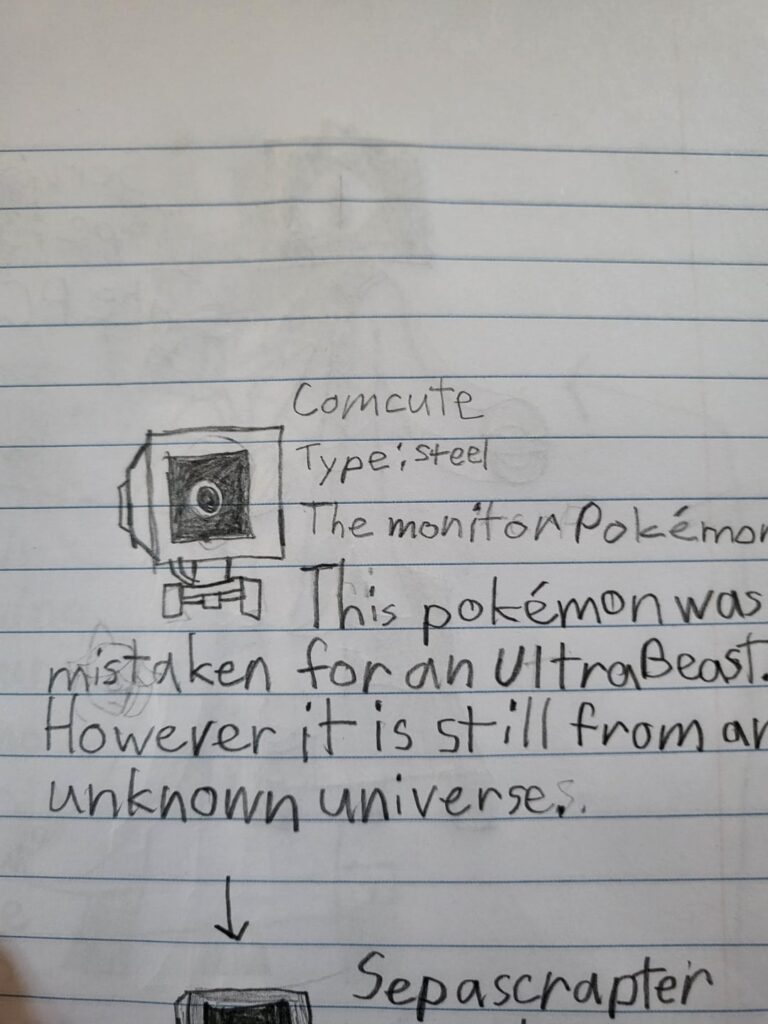 Comcute
Type: steel
The monitor Pokémon
This pokémon was
mistaken for an UltraBeast.
However it is still from an
unknown universe.
Sepascrapter